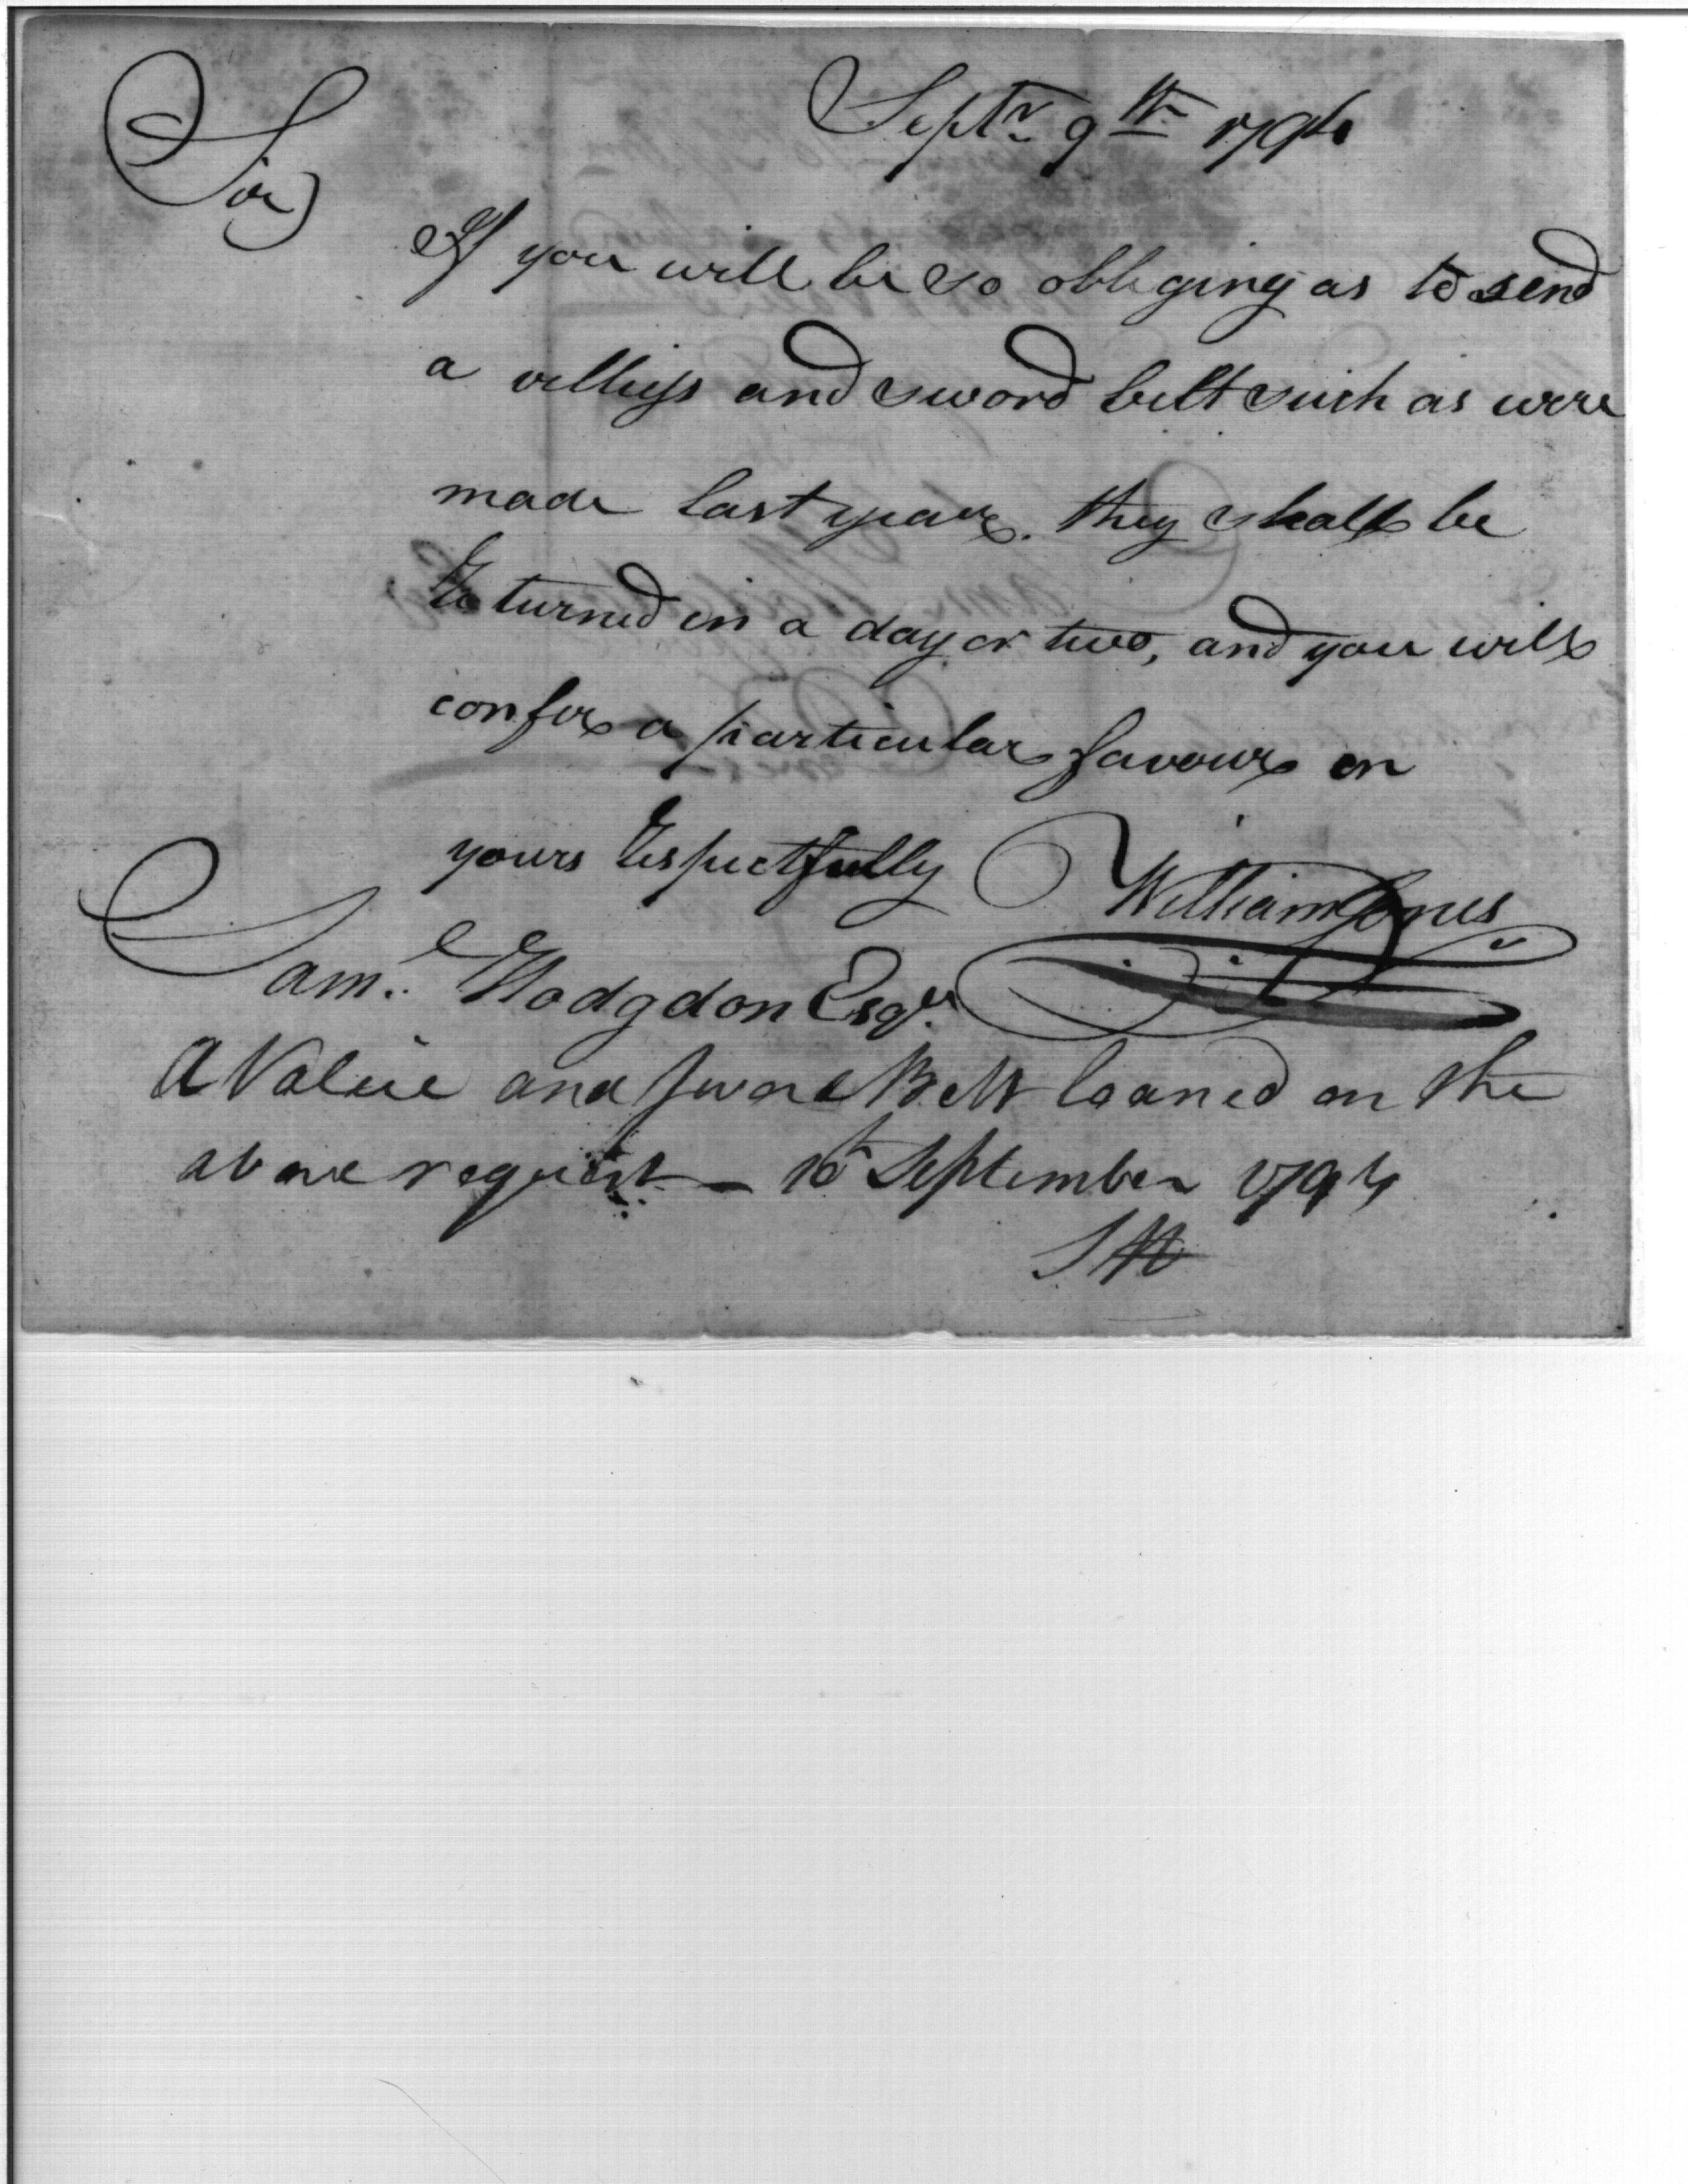 Septr. 9th 1794
Sir
If you will be so obligeing as to send
a velliess and sword belt such as were
made last year. they shall be
Returned in a day or two, and you will
confer a particular favour on
yours Respectfully William Jones
Saml. Hodgdon Esqr.
A Valice and Sword Belt loaned on the
above request — 10 September 1794
SH